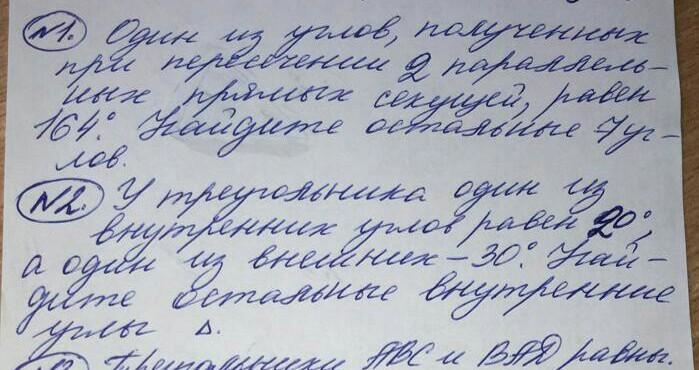 №1. Один из углов, полученных
при пересечении 2 параллель-
ных прямых секущей, равен
164°. Найдите остальные 7 уг-
лов.
№2. У треугольника один из
внутренних углов равен 20°,
а один из внешних – 30°. Най-
дите остальные внутренние
углы Δ.
Треугольники ABC и BAD равны.